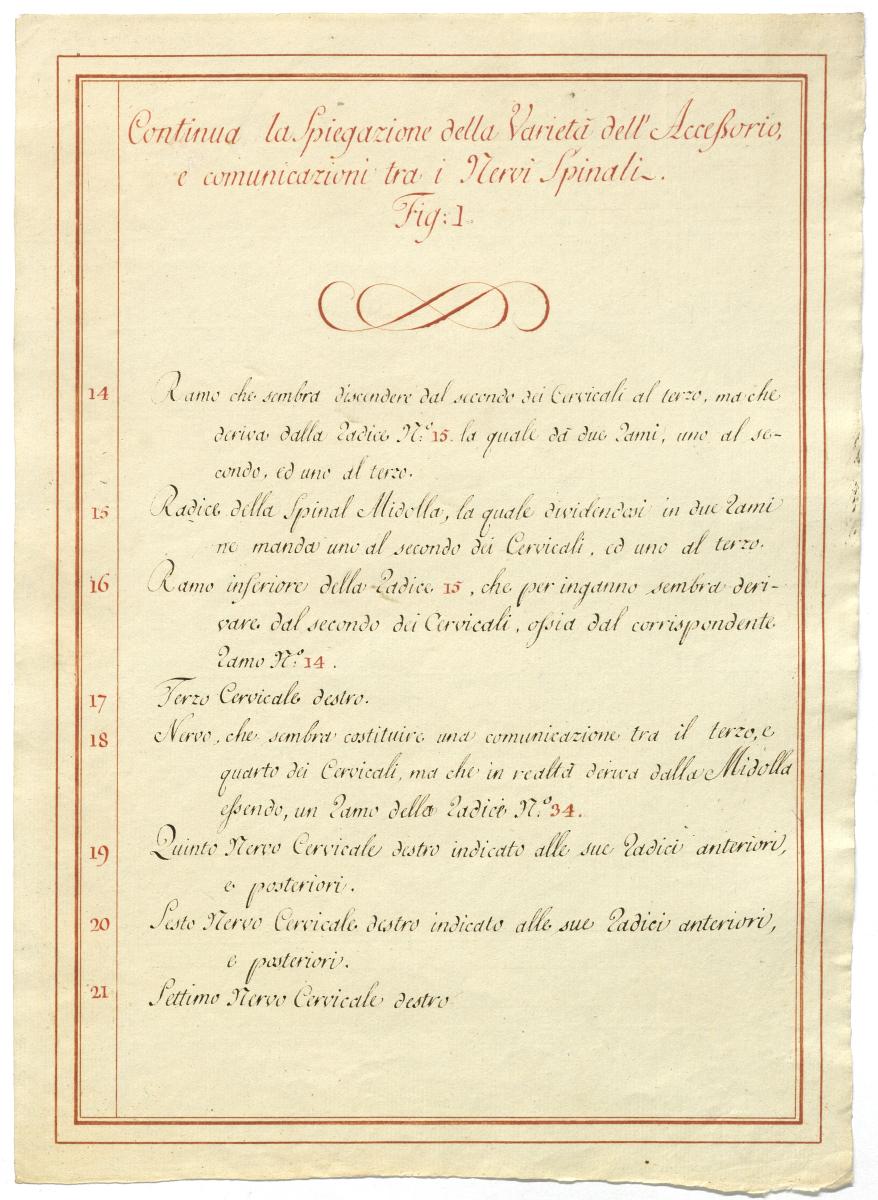 Continua la Spiegazione della Varietà dell' Accessorio,
e comunicazioni tra i Nervi Spinali.
Fig: 1.
14 Ramo che sembra discendere dal secondo dei Cervicali al terzo, ma che
deriva dalla Radice N.º 15. la quale dà due Rami, uno al se-
condo, ed uno al terzo.
15 Radice della Spinal Midolla, la quale dividendosi in due Rami
ne manda uno al secondo dei Cervicali, ed uno al terzo.
16 Ramo inferiore della Radice 15, che per inganno sembra deri-
vare dal secondo dei Cervicali, ossia dal corrispondente
Ramo N.º 14.
17 Terzo Cervicale destro.
18 Nervo, che sembra costituire una comunicazione tra il terzo, e
quarto dei Cervicali, ma che in realtà deriva dalla Midolla
essendo, un Ramo della Radice N.º 34.
19 Quinto Nervo Cervicale destro indicato alle sue Radici anteriori,
e posteriori.
20 Sesto Nervo Cervicale destro indicato alle sue Radici anteriori,
e posteriori.
21 Settimo Nervo Cervicale destro